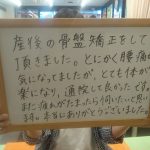 産後の骨盤矯正をして
頂きました。とにかく腰痛が
気になってましたが、とても体が
楽になり、通院して良かったです。
また痛みがたまったら伺いたいと思い
ます。本当にありがとうございました。